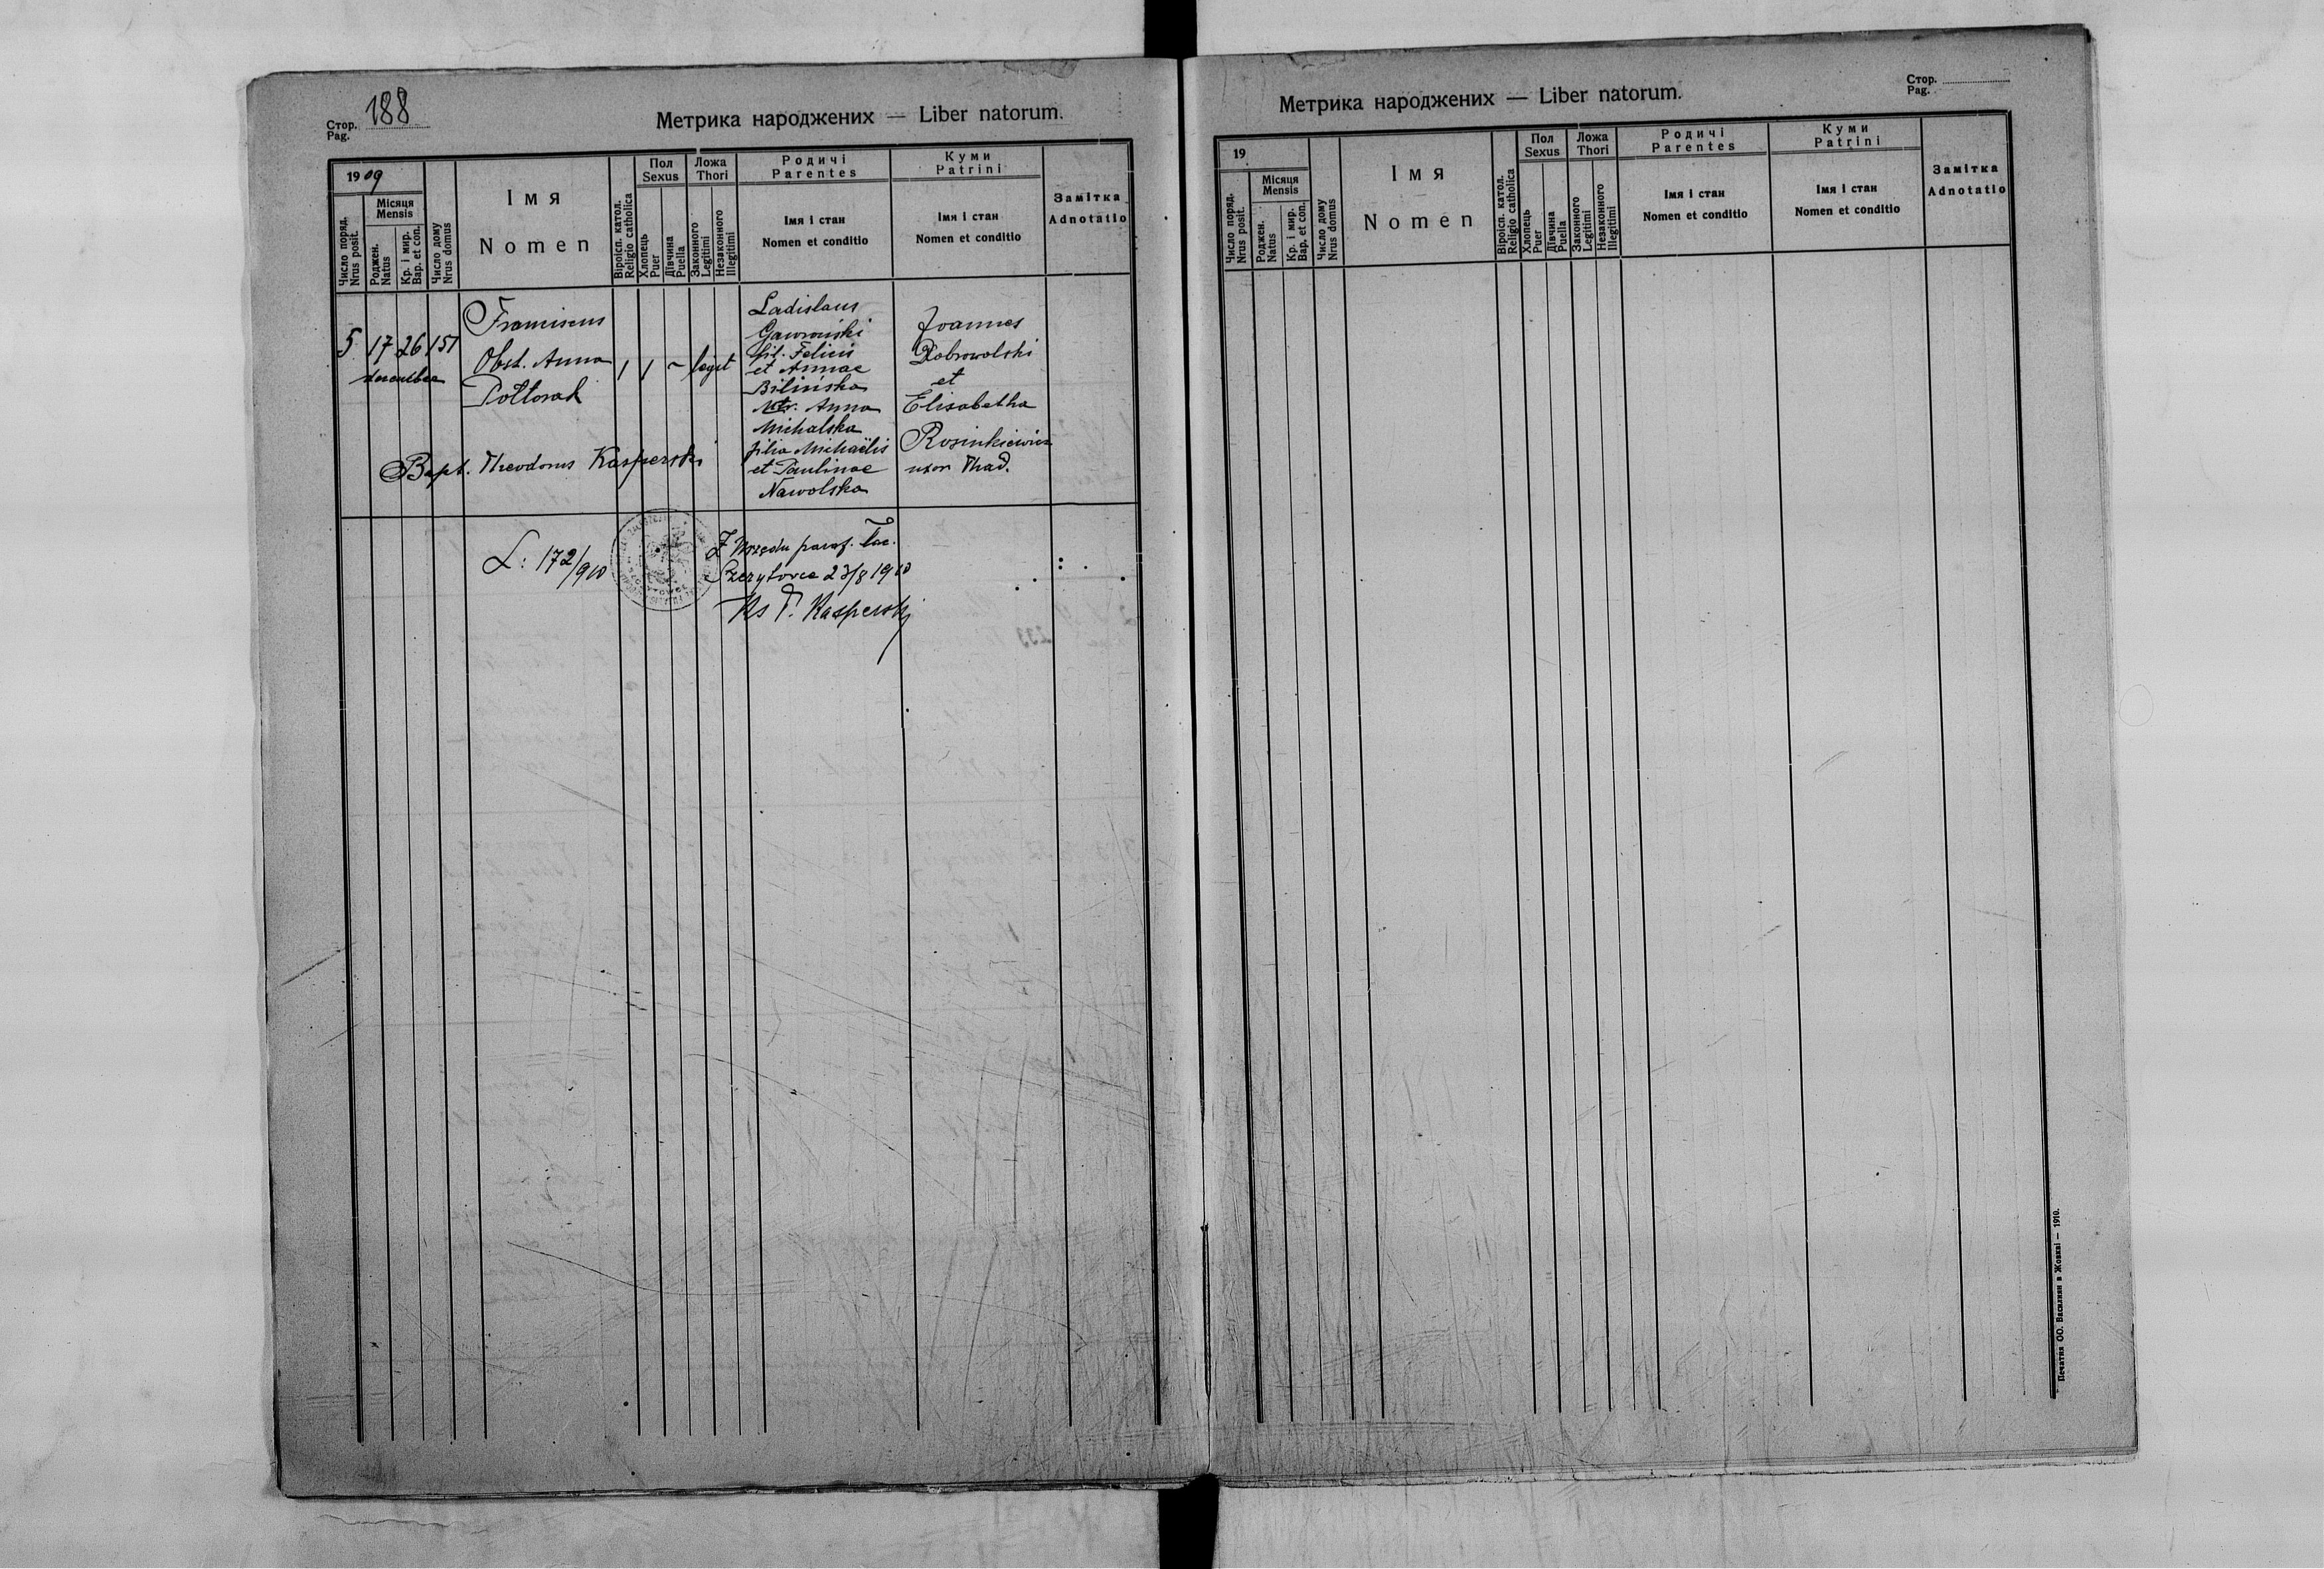 Стор.
Pag.
188
Метрика народжених — Liber natorum.
1909
Число поряд.
Nrus posit.
Місяця
Mensis
Роджен.
Natus
Кр. і мир.
Bap. et con.
Число дому
Nrus domus
Імя
Nomen
Віроісп. катол.
Religio catholica
Пол
Sexus
Хлопець
Puer
Дівчина
Puella
Ложа
Thori
Законного
Legitimi
Незаконного
Illegitimi
Родичі
Parentes
Імя і стан
Nomen et conditio
Куми
Patrini
Імя і стан
Nomen et conditio
Замітка
Adnotatio
5 17 26 151
decembre
Franciscus
Obst. Anna
Półtorak
1 1 ~ legit
Ladislaus
Gawroński
fil. Felicis
et Annae
Bilińska
Mtr. Anna
Michalska
filia Michaëlis
et Paulinae
Nawolska
Joannes
Dobrowolski
et
Elisabetha
Rosinkiewicz
uxor Thad.
Bapt. Theodorus Kasperski
L: 172/910
Z Urzędu paraf. łac.
23/8 1910
Ks T. Kasperski
Метрика народжених — Liber natorum.
Стор.
Pag.
19
Число поряд.
Nrus posit.
Місяця
Mensis
Роджен.
Natus
Кр. і мир.
Bap. et con.
Число дому
Nrus domus
Імя
Nomen
Віроісп. катол.
Religio catholica
Пол
Sexus
Хлопець
Puer
Дівчина
Puella
Ложа
Thori
Законного
Legitimi
Незаконного
Illegitimi
Родичі
Parentes
Імя і стан
Nomen et conditio
Куми
Patrini
Імя і стан
Nomen et conditio
Замітка
Adnotatio
Печатня ОО. Василиян в Жовкві — 1910.